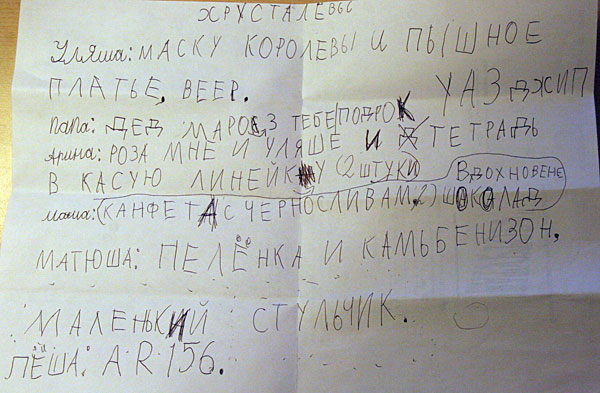 ХРУСТАЛЁВЫ
Уляша: МАСКУ КОРОЛЕВЫ И ПЫШНОЕ
ПЛАТЬЕ, ВЕЕР.
ПАПА: ДЕД МАРОЗ ТЕБЕ ПОДРОК УАЗ ДЖИП
Арина: РОЗА МНЕ И УЛЯШЕ И ТЕТРАДЬ
В КАСУЮ ЛИНЕЙКУ (2 ШТУКИ)
маша: (КАНФЕТА С ЧЕРНОСЛИВАМ, 2) ШОКОЛАД ВДОХНОВЕНЕ
МАТЮША: ПЕЛЁНКА И КАМЬБЕНИЗОН.
МАЛЕНЬКИЙ СТУЛЬЧИК.
ЛЁША: AR 156.